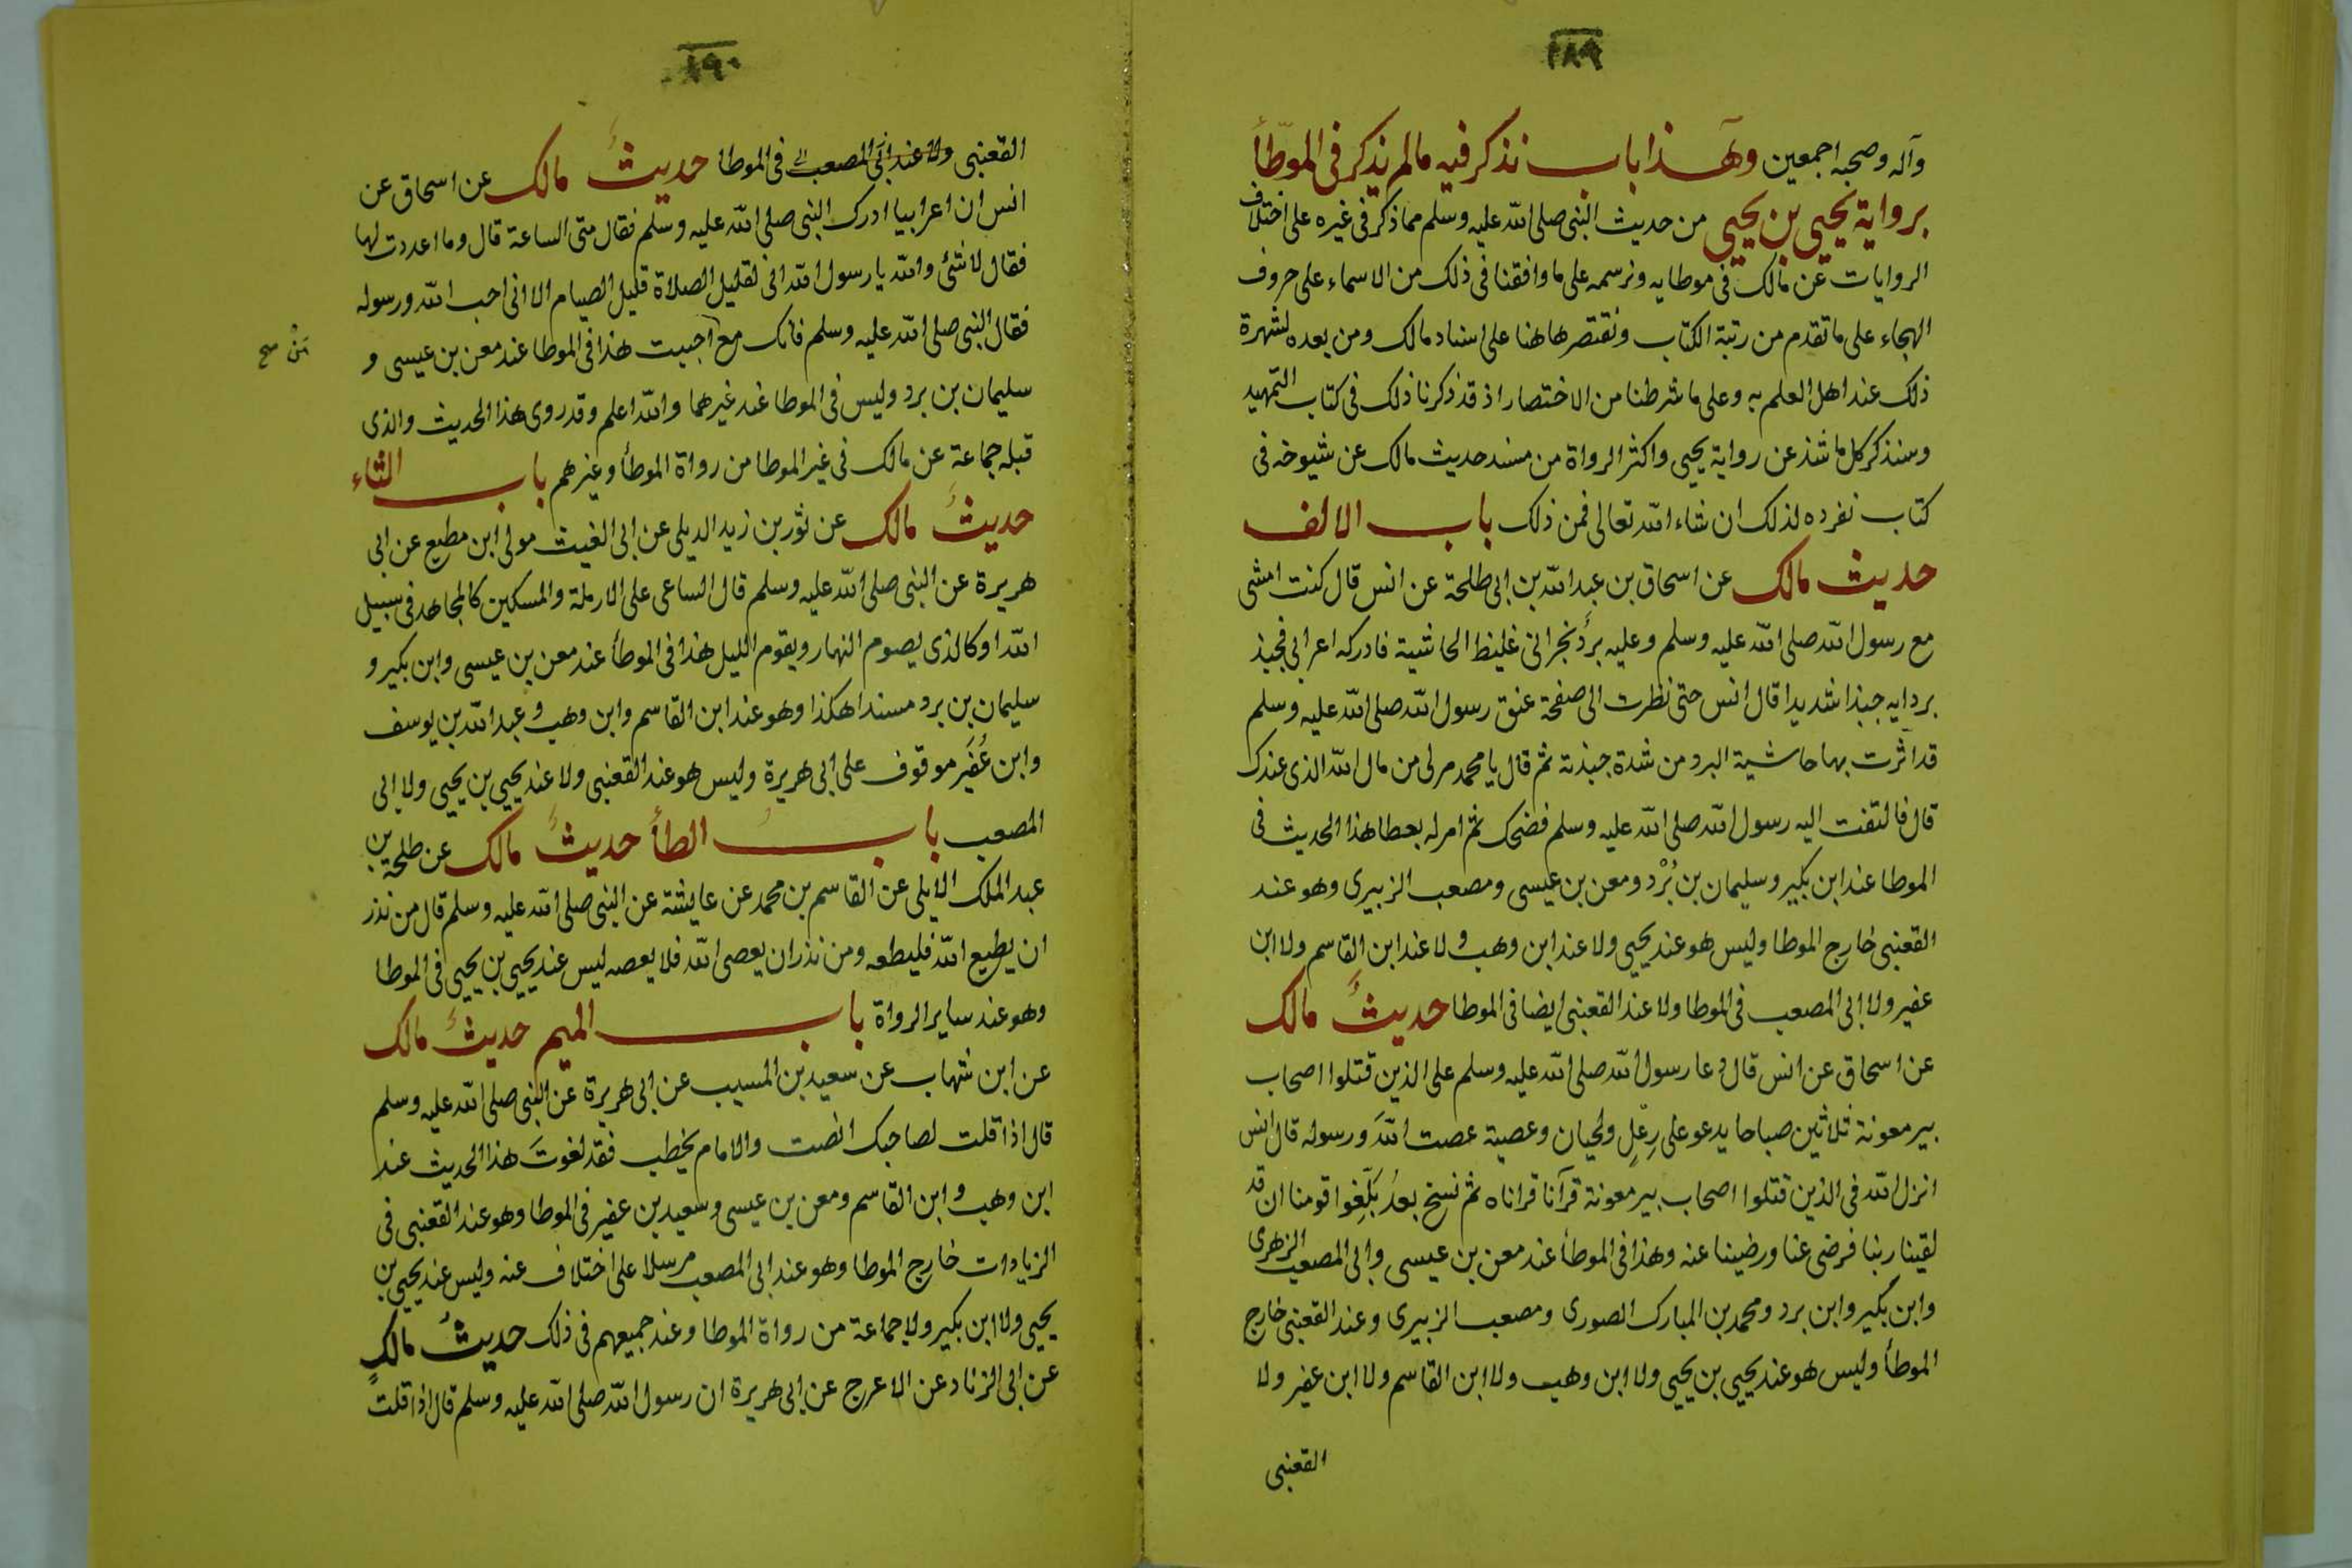 ١٨٩
وآله وصحبه اجمعين وهذا باب نذكر فيه مالم يذكر فى الموطأ
برواية يحيى بن يحيى من حديث النبى صلى الله عليه وسلم مما ذكر فى غيره على اختلاف
الروايات عن مالك فى موطايه ونرسمه على ما وافقنا فى ذلك من الاسماء على حروف
الهجاء على ما تقدم من رتبة الكتاب ونقتصر هاهنا على اسناد مالك ومن بعده لشهرة
ذلك عند اهل العلم به وعلى ما شرطنا من الاختصار اذ قد ذكرنا ذلك فى كتاب التمهيد
وسنذكر كل ما شذ عن رواية يحيى واكثر الرواة من مسند حديث مالك عن شيوخه فى
كتاب نفرده لذلك ان شاء الله تعالى فمن ذلك باب الالف
حديث مالك عن اسحاق بن عبد الله بن ابى طلحة عن انس قال كنت امشى
مع رسول الله صلى الله عليه وسلم وعليه برد نجرانى غليظ الحاشية فادركه اعرابى فجبذ
بردايه جبذا شديدا قال انس حتى نظرت الى صفحة عنق رسول الله صلى الله عليه وسلم
قد اثرت بها حاشية البرد من شدة جبذته ثم قال يا محمد مر لى من مال الله الذى عندك
قال فالتفت اليه رسول الله صلى الله عليه وسلم فضحك ثم امر له بعطا هذا الحديث فى
الموطا عند ابن بكير وسليمان بن بُرْد ومعن بن عيسى ومصعب الزبيرى وهو عند
القعنبى خارج الموطا وليس هو عند يحيى ولا عند ابن وهب ولا عند ابن القاسم ولا ابن
عفير ولا ابى المصعب فى الموطا ولا عند القعنبى ايضا فى الموطا حديثُ مالك
عن اسحاق عن انس قال دعا رسول الله صلى الله عليه وسلم على الذين قتلوا اصحاب
بير معونة ثلاثين صباحا يدعو على رِعْلٍ ولحيان وعصية عصت اللهَ ورسوله قال انس
انزل الله فى الذين قتلوا اصحاب بير معونة قرآنا قراناه ثم نسخ بعدُ بَلِّغوا قومنا ان قد
لقينا ربنا فرضى عنا ورضينا عنه وهذا فى الموطأ عند معن بن عيسى وابى المصعب الزهرى
وابن بكير وابن برد ومحمد بن المبارك الصورى ومصعب الزبيرى وعند القعنبى خارج
الموطأ وليس هو عند يحيى بن يحيى ولا ابن وهب ولا ابن القاسم ولا ابن عفير ولا
القعنبى
١٩٠
القعنبى ولا عند ابى المصعب فى الموطا حديثُ مالك عن اسحاق عن
انس ان اعرابيا ادرك النبى صلى الله عليه وسلم فقال متى الساعة قال وما اعددت لها
فقال لا شئ والله يا رسول الله انى لقليل الصلاة قليل الصيام الا انى احب الله ورسوله
فقال النبى صلى الله عليه وسلم فانك مع احببت هذا فى الموطا عند معن بن عيسى و
مَنْ صح
سليمان بن برد وليس فى الموطا عند غيرهما والله اعلم وقد روى هذا الحديث والذى
قبله جماعة عن مالك فى غير الموطا من رواة الموطأ وغيرهم باب الثاء
حديثُ مالك عن ثور بن زيد الديلى عن ابى الغيث مولى ابن مطيع عن ابى
هريرة عن النبى صلى الله عليه وسلم قال الساعى على الارملة والمسكين كالمجاهد فى سبيل
الله او كالذى يصوم النهار ويقوم الليل هذا فى الموطأ عند معن بن عيسى وابن بكير و
سليمان بن برد مسندا هكذا وهو عند ابن القاسم وابن وهب وعبد الله بن يوسف
وابن عُفَير موقوف على ابى هريرة وليس هو عند القعنبى ولا عند يحيى بن يحيى ولا ابى
المصعب بابُ الطأ حديثُ مالك عن طلحة بن
عبد الملك الايلى عن القاسم بن محمد عن عايشة عن النبى صلى الله عليه وسلم قال من نذر
ان يطيع الله فليطعه ومن نذر ان يعصى الله فلا يعصه ليس عند يحيى بن يحيى فى الموطا
وهو عند ساير الرواة باب الميم حديثُ مالك
عن ابن شهاب عن سعيد بن المسيب عن ابى هريرة عن النبى صلى الله عليه وسلم
قال اذا قلت لصاحبك انصت والامام يخطب فقد لغوتَ هذا الحديث عند
ابن وهب وابن القاسم ومعن بن عيسى وسعيد بن عفير فى الموطا وهو عند القعنبى فى
الزيادات خارج الموطا وهو عند ابى المصعب مرسلا على اختلاف عنه وليس عند يحيى بن
يحيى ولا ابن بكير ولا جماعة من رواة الموطا وعند جميعهم فى ذلك حديثُ مالكٍ
عن ابى الزناد عن الاعرج عن ابى هريرة ان رسول الله صلى الله عليه وسلم قال اذا قلت